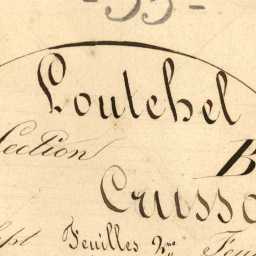 - 55 -
Loutehel
Section B
Crusso
Sept Feuilles 2me Feu